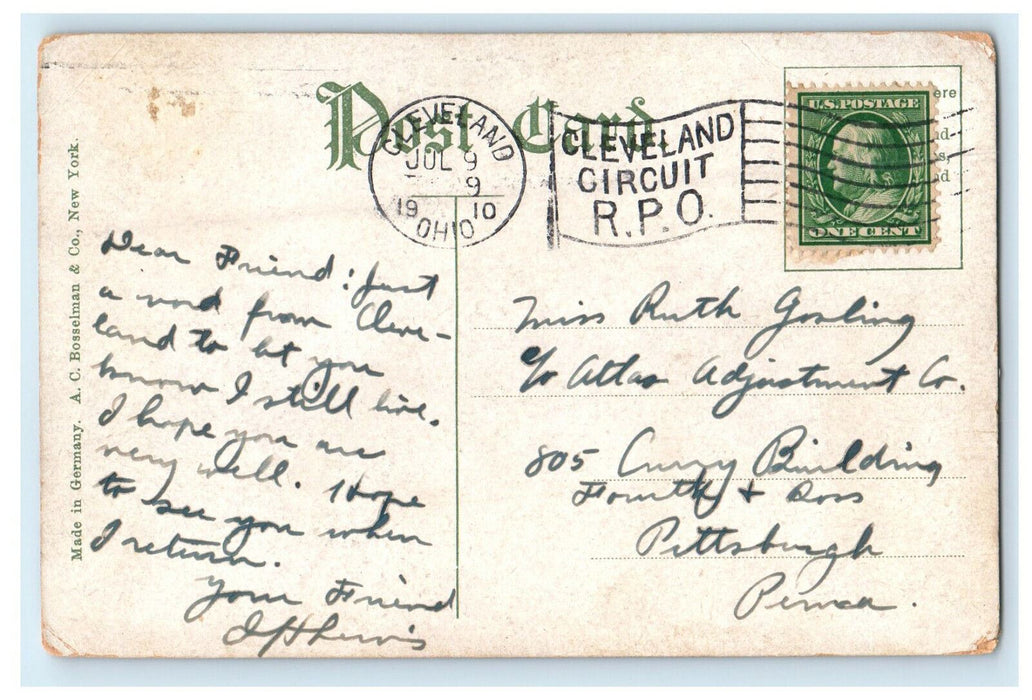 Post Card.
CLEVELAND
JUL 9
9
19 10
OHIO
CLEVELAND
CIRCUIT
R.P.O.
U.S. POSTAGE
ONE CENT
Made in Germany. A. C. Bosselman & Co., New York.
Dear Friend: Just
a word from Cleve-
land to let you
know I still live.
I hope you are
very well. Hope
to see you when
I return.
Your Friend
Lewis
Miss Ruth Gosling
c/o Atlas Adjustment Co.
805 Curry Building
Fourth & Ross
Pittsburgh
Penna.